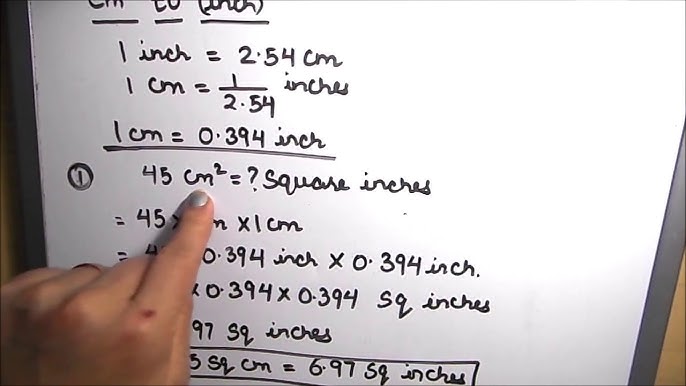 cm to (inch)
1 inch = 2.54 cm
1 cm = 1/2.54 inches
1 cm = 0.394 inch
① 45 cm² = ? Square inches
= 45 × m × 1 cm
= 4 0.394 inch × 0.394 inch.
× 0.394 × 0.394 sq inches
97 sq inches
5 sq cm = 6.97 sq inches